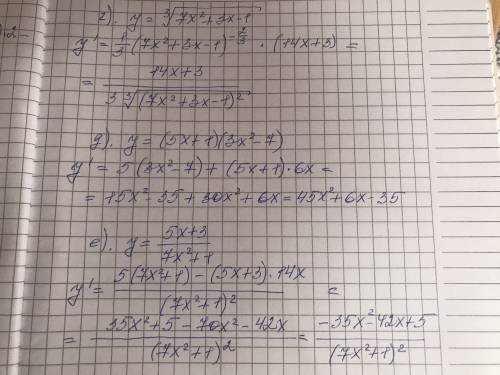 г). y = ∛(7x²+3x-1)
y' = 1/3 (7x²+3x-1)^(-2/3) · (14x+3) =
= (14x+3) / (3∛((7x²+3x-1)²))
д). y = (5x+1)(3x²-7)
y' = 5(3x²-7) + (5x+1)·6x =
= 15x²-35+30x²+6x = 45x²+6x-35
е). y = (5x+3) / (7x²+1)
y' = (5(7x²+1) - (5x+3)·14x) / (7x²+1)² =
= (35x²+5-70x²-42x) / (7x²+1)² = (-35x²-42x+5) / (7x²+1)²